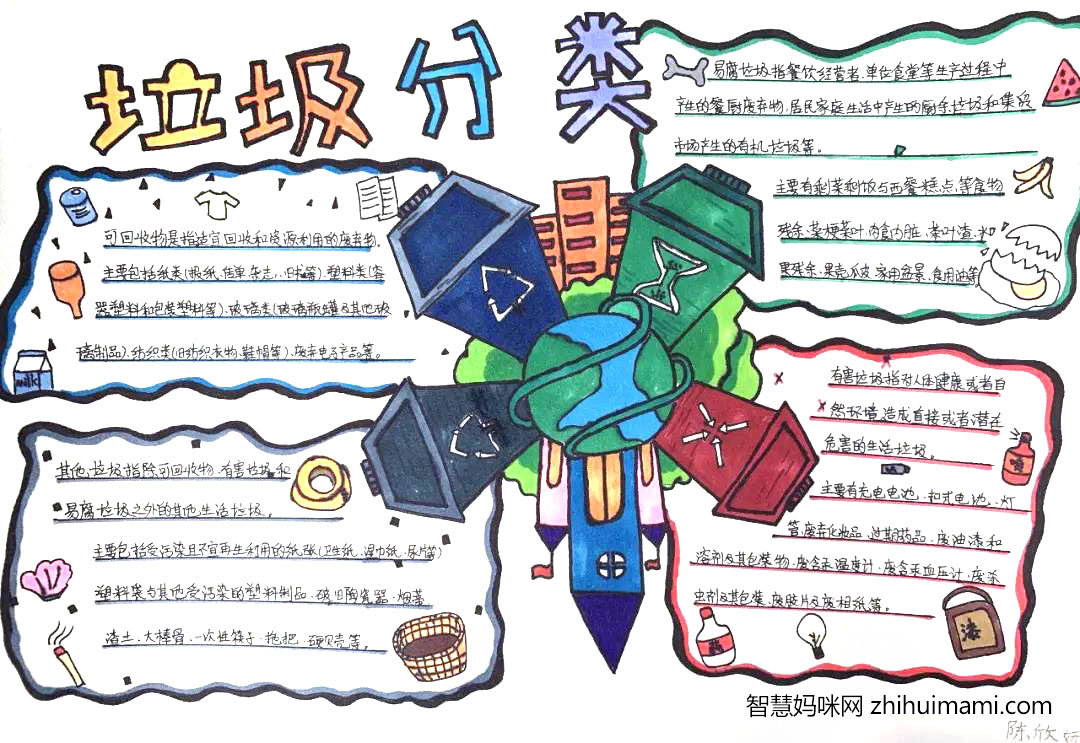 垃圾分类
易腐垃圾指餐饮经营者、单位食堂等生产过程中
产生的餐厨废弃物,居民家庭生活中产生的厨余垃圾和集贸
市场产生的有机垃圾等。
主要有剩菜剩饭与西餐糕点等食物
残余、菜梗菜叶、肉食内脏、茶叶渣、水
果残余、果壳瓜皮、家用盆景、食用油等
可回收物是指适宜回收和资源利用的废弃物。
主要包括纸类(报纸、传单、杂志、旧书等)、塑料类(容
器塑料和包装塑料等)、玻璃类(玻璃瓶罐及其他玻
璃制品)、纺织类(旧纺织衣物、鞋帽等)、废弃电子产品等。
milk
有害垃圾指对人体健康或者自
然环境造成直接或者潜在
危害的生活垃圾。
主要有充电电池、扣式电池、灯
管、废弃化妆品、过期药品、废油漆和
溶剂及其包装物、废含汞温度计、废含汞血压计、废杀
虫剂及其包装、废胶片及废相纸等。
漆
其他垃圾指除可回收物、有害垃圾和
易腐垃圾之外的其他生活垃圾。
主要包括受污染且不宜再生利用的纸张(卫生纸、湿巾纸、尿片等)
塑料袋与其他受污染的塑料制品、破旧陶瓷器、烟蒂
渣土、大棒骨、一次性筷子、拖把、硬贝壳等。
智慧妈咪网 zhihuimami.com
陈欣